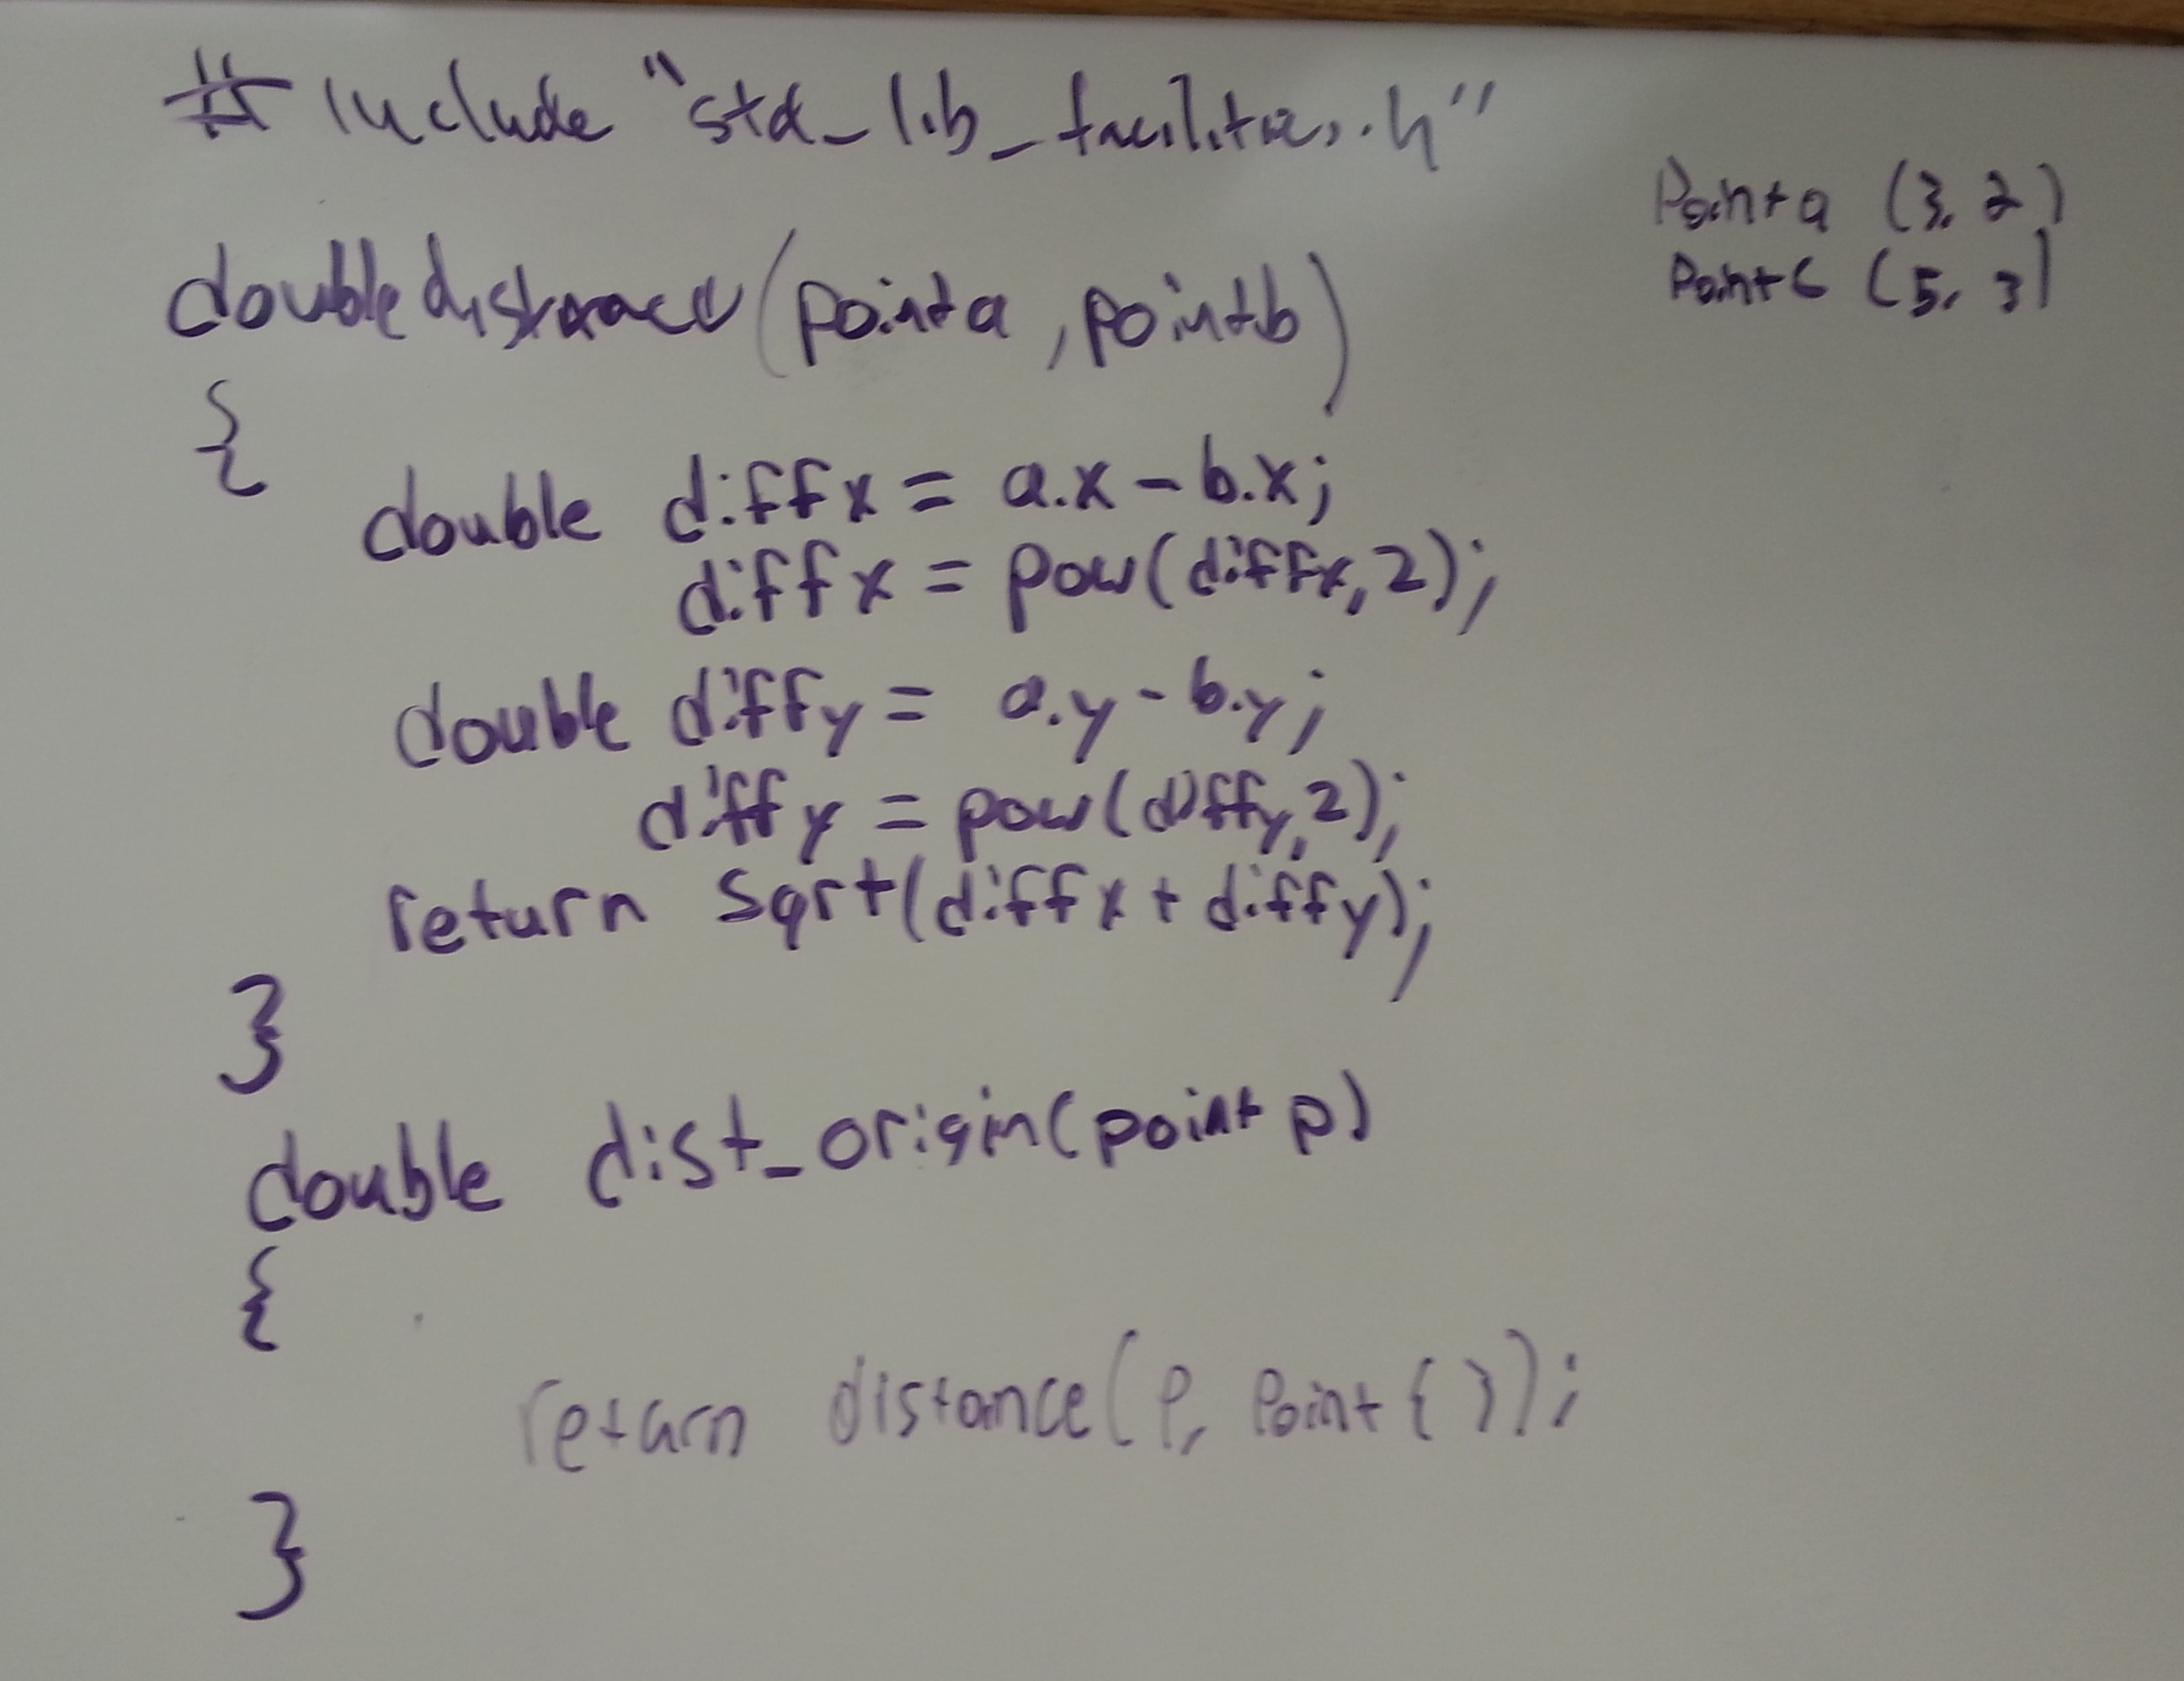 #include "std_lib_facilities.h"
Point a (3, 2)
Point b (5, 3)
double distance(point a, point b)
{
double diffx = a.x - b.x;
diffx = pow(diffx, 2);
double diffy = a.y - b.y;
diffy = pow(diffy, 2);
return sqrt(diffx + diffy);
}
double dist_origin(point p)
{
return distance(P, Point{});
}